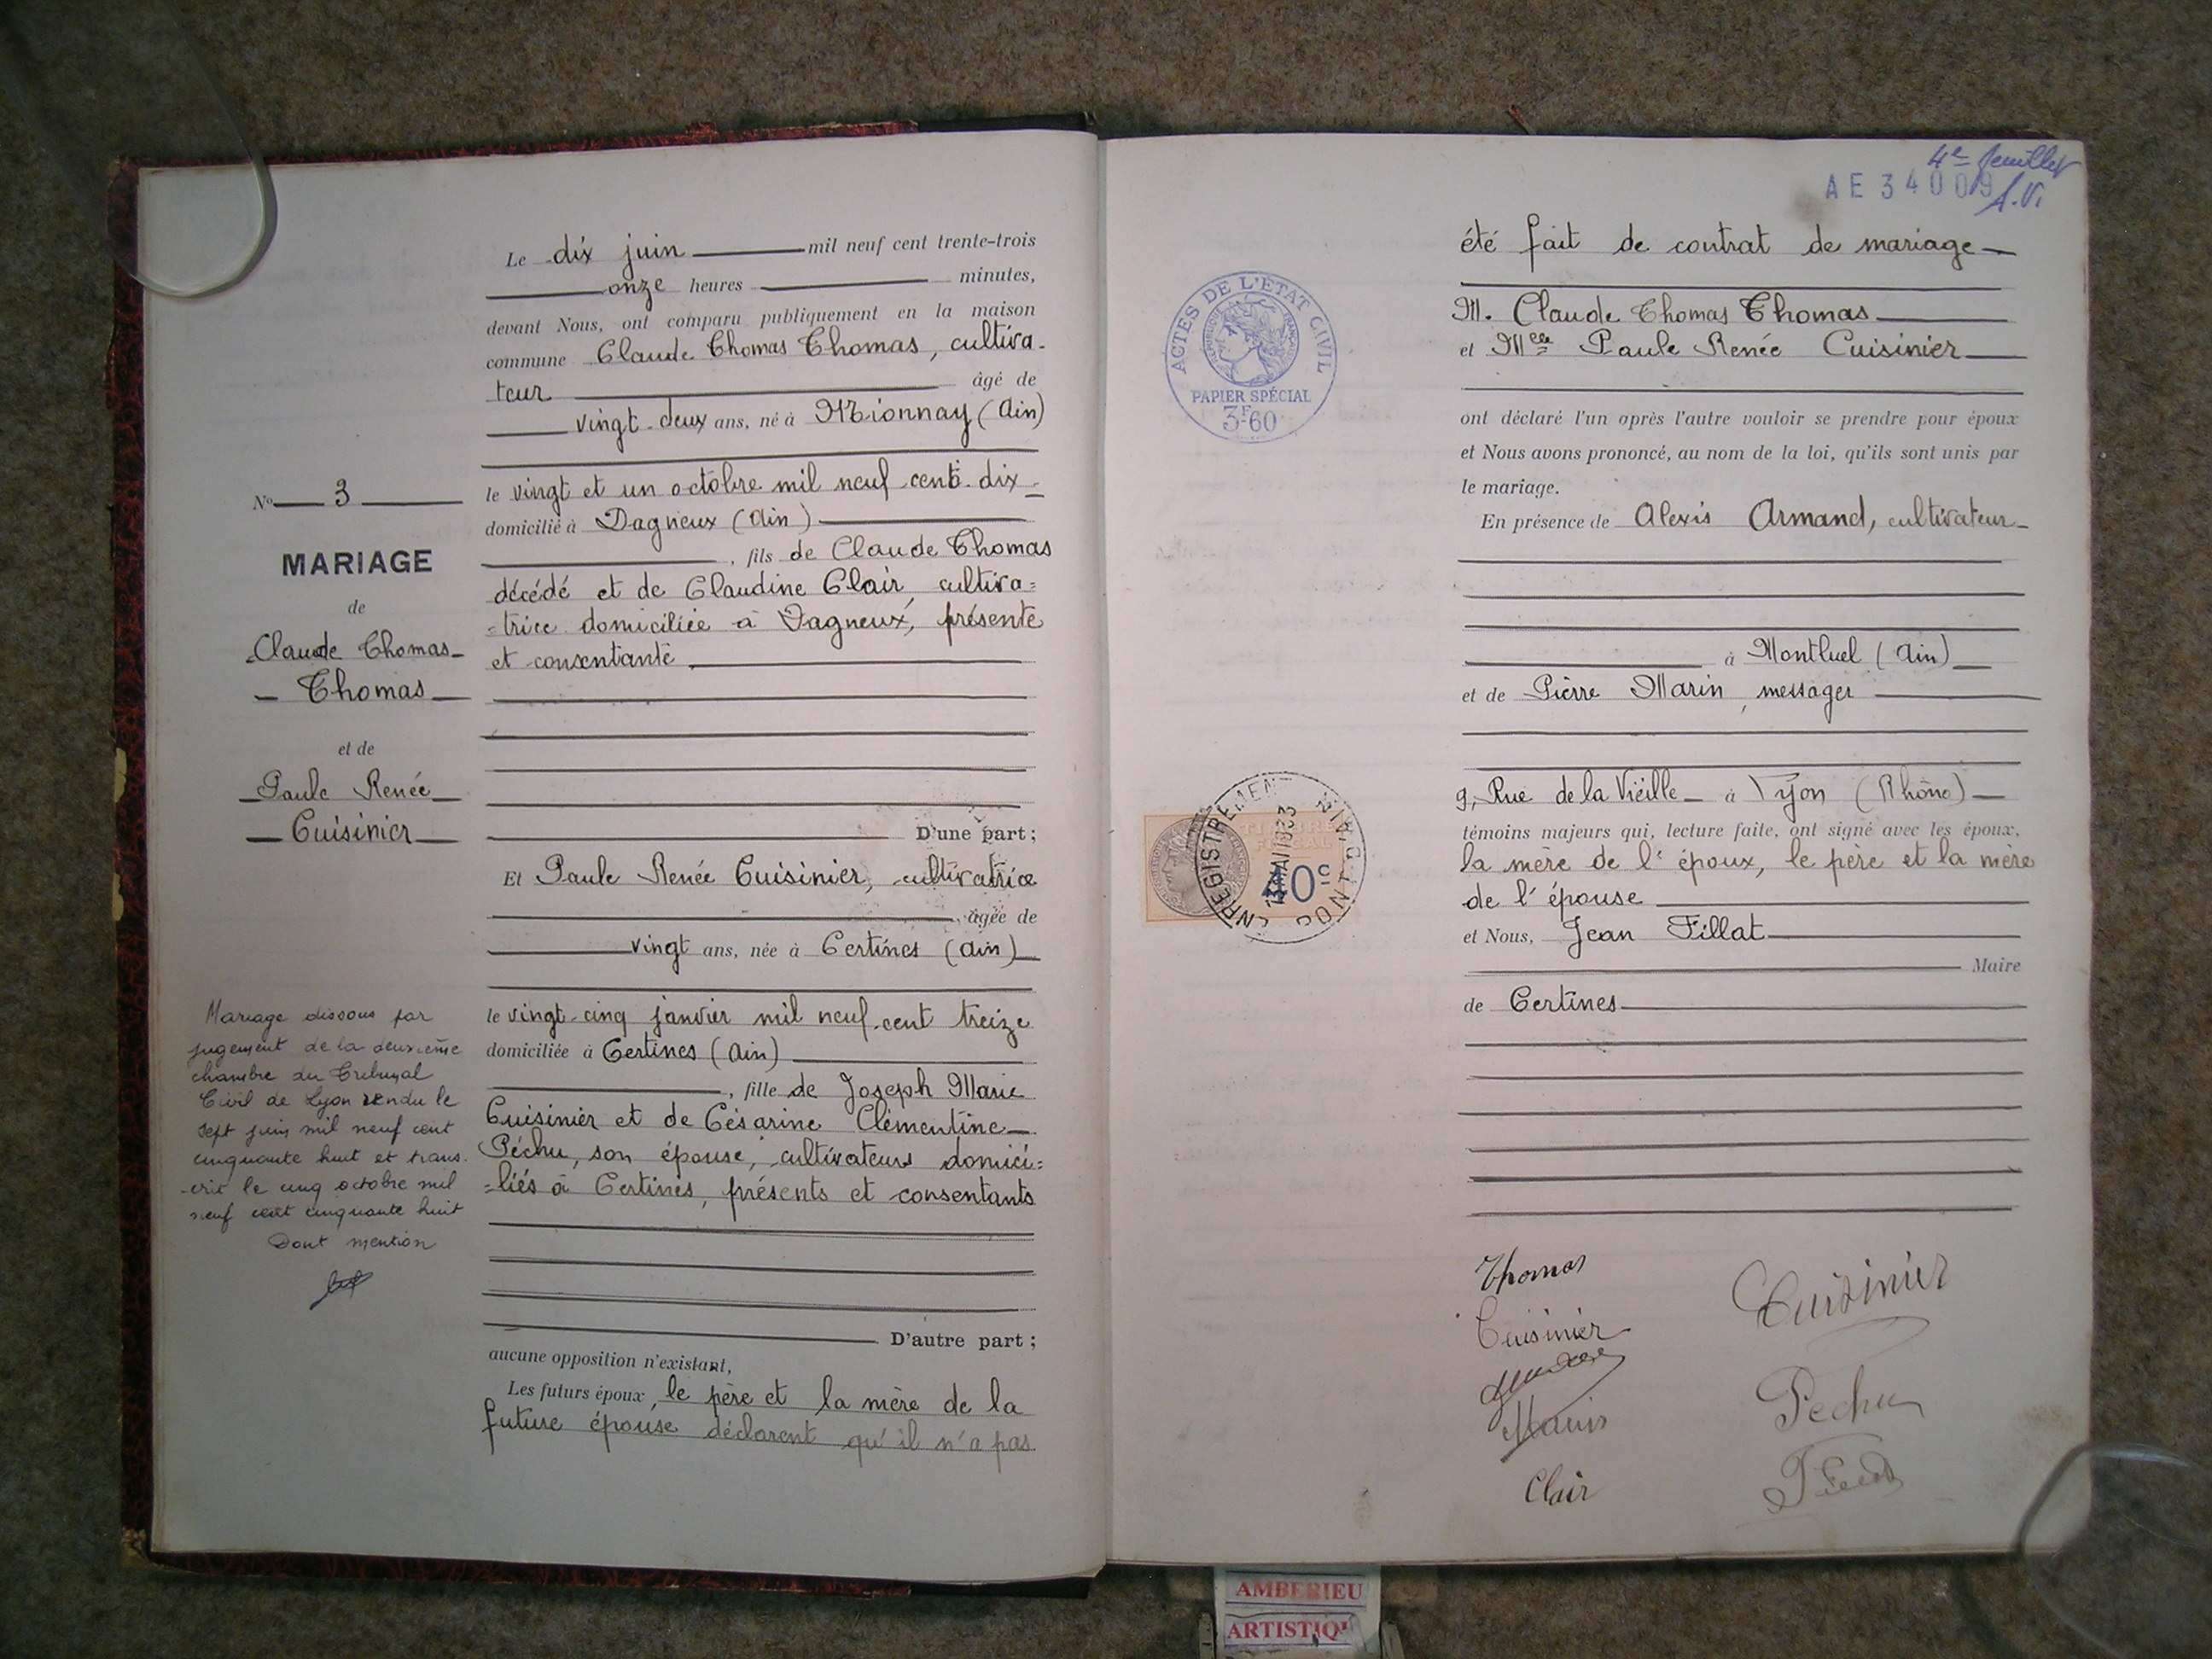 Le dix juin mil neuf cent trente-trois
onze heures minutes,
devant Nous, ont comparu publiquement en la maison
commune Claude Thomas Thomas, cultiva-
teur âgé de
vingt-deux ans, né à Mionnay (Ain)
le vingt et un octobre mil neuf cent dix
domicilié à Dagneux (Ain)
, fils de Claude Thomas
décédé et de Claudine Clair, cultiva=
=trice domiciliée à Dagneux, présente
et consentante
D'une part;
Et Paule Renée Cuisinier, cultivatrice
âgée de
vingt ans, née à Certines (Ain)
le vingt-cinq janvier mil neuf cent treize
domiciliée à Certines (Ain)
, fille de Joseph Marie
Cuisinier et de Césarine Clémentine
Péchu, son épouse, cultivateurs domici=
=liés à Certines, présents et consentants
D'autre part;
aucune opposition n'existant,
Les futurs époux, le père et la mère de la
future épouse déclarent qu'il n'a pas
No 3
MARIAGE
de
Claude Thomas
Thomas
et de
Paule Renée
Cuisinier
Mariage dissous par
jugement de la deuxième
chambre du Tribunal
Civil de Lyon rendu le
sept juin mil neuf cent
cinquante huit et trans-
-crit le cinq octobre mil
neuf cent cinquante huit
Dont mention
4e feuillet
AE 34009
A.V.
ACTES DE L'ÉTAT CIVIL
RÉPUBLIQUE FRANÇAISE
PAPIER SPÉCIAL
3F60
été fait de contrat de mariage
M. Claude Thomas Thomas
et Melle Paule Renée Cuisinier
ont déclaré l'un après l'autre vouloir se prendre pour époux
et Nous avons prononcé, au nom de la loi, qu'ils sont unis par
le mariage.
En présence de Alexis Armand, cultivateur
à Montluel (Ain)
et de Pierre Marin, messager
9, Rue de la Vieille à Lyon (Rhône)
témoins majeurs qui, lecture faite, ont signé avec les époux,
la mère de l'époux, le père et la mère
de l'épouse
et Nous, Jean Fillat
Maire
de Certines
ENREGISTREMENT
PONT-D'AIN
MAI 1933
TIMBRE
FISCAL
40c
Thomas
Cuisinier
Cuisinier
Marin
Pechu
Clair
AMBERIEU
ARTISTIQ